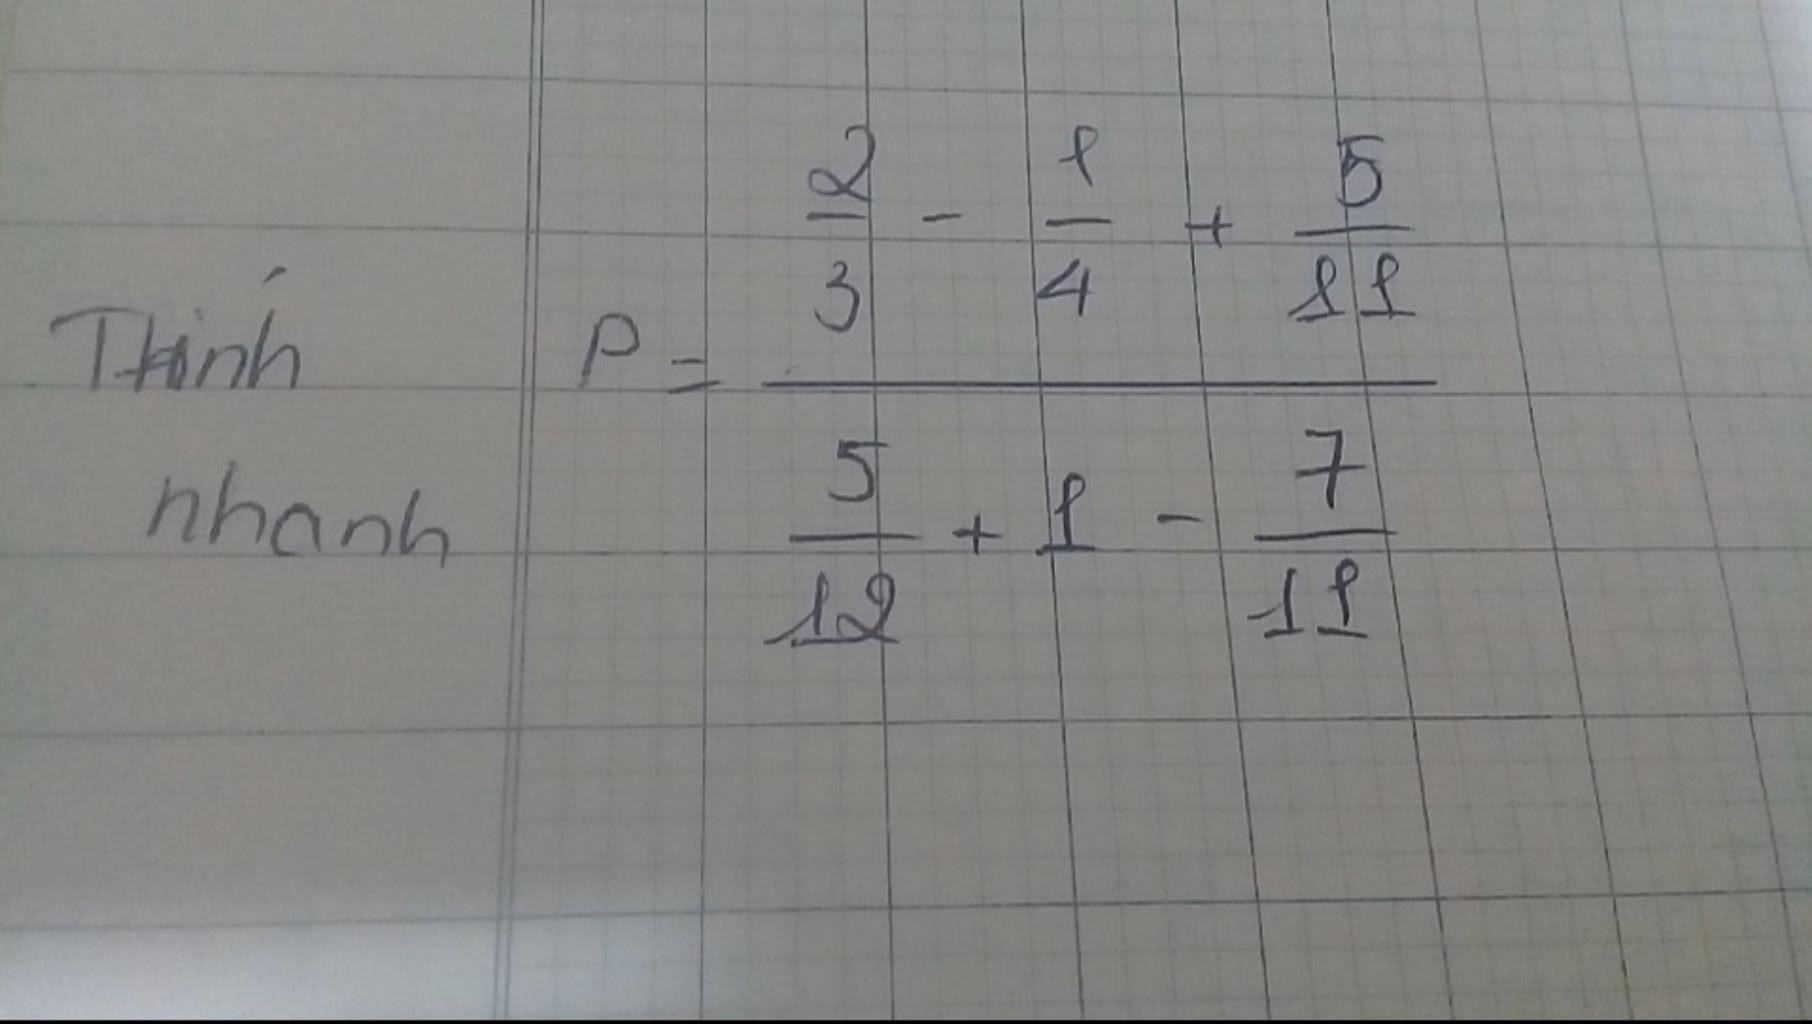 Tính
nhanh
P =
2/3 - 1/4 + 5/11
5/12 + 1 - 7/11